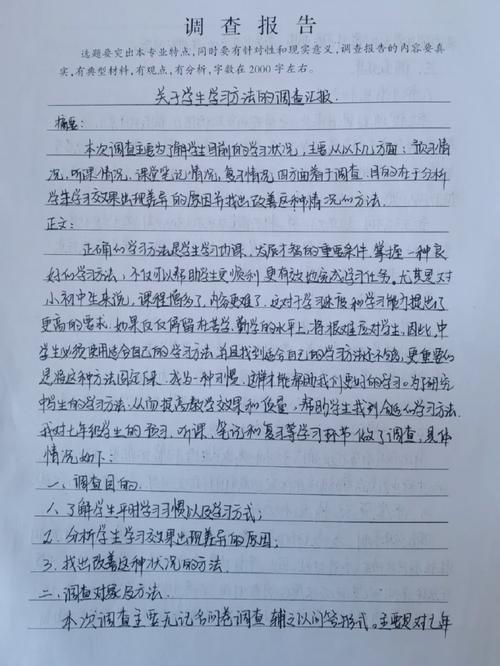 调查报告
选题要突出本专业特点，同时要有针对性和现实意义，调查报告的内容要真
实，有典型材料，有观点，有分析，字数在 2000 字左右。
关于学生学习方法的调查汇报.
摘要：
本次调查主要为了解学生目前的学习状况，主要从以下几方面：预习情
况，听课情况，课堂笔记情况，复习情况 四方面着手调查.目的在于分析
学生学习效果出现差异的原因并找出改善这种情况的方法.
正文：
正确的学习方法是学生学习功课，发展才智的重要条件.掌握一种良
好的学习方法，不仅可以帮助学生更顺利 更有效地完成学习任务。尤其是对
小初中生来说，课程增多了，内容更难了，这对于学习进度和学习能力提出了
更高的要求.如果仅仅停留在苦学，勤学的水平上，将很难应对学生，因此，中
学生必须使用适合自己的学习方法，并且找到适合自己的学习方法还不够，更重要的
是将这种方法固定下来，成为一种习惯，这样才能帮助我们更好的学习。为了研究
中学生的学习方法.从而提高教学效果和质量，帮助学生找到合适的学习方法.
我对七年级学生的预习，听课，笔记和复习等学习环节做了调查，具体
情况如下：
一、调查目的.
1.了解学生平时学习习惯以及学习方式；
2.分析学生学习效果出现差异的原因；
3.找出改善这种状况的方法.
二、调查对象及方法.
本次调查主要无记名问卷调查 辅之以问答形式。主要是对七年